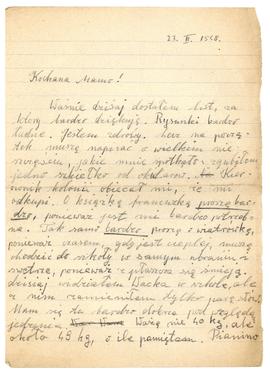 23. II. 1958.
Kochana Mamo!
Właśnie dzisiaj dostałem list, za
który bardzo dziękuję. Rysunki bardzo
ładne. Jestem zdrowy. Lecz na począ-
tek muszę napisać o wielkim nie
szczęściu, jakie mnie spotkało: zgubiłem
jedno szkiełko od okularów. Kier-
ownik kolonii obiecał mi, że mi
odkupi. O książkę francuską proszę bar-
dzo, ponieważ jest mi bardzo potrzeb-
na. Tak samo bardzo proszę o wiatrówkę,
ponieważ czasem, gdy jest cieplej, muszę
chodzić do szkoły w samym ubraniu i
swetrze, ponieważ z się śmieją.
Dzisiaj widziałem Wacka w szkole, ale
z nim zamieniłem tylko parę słów.
Mam się tu bardzo dobrze pod względem
jedzenia. Ważę nie 40 kg, ale
około 45 kg, o ile pamiętam. Pianino